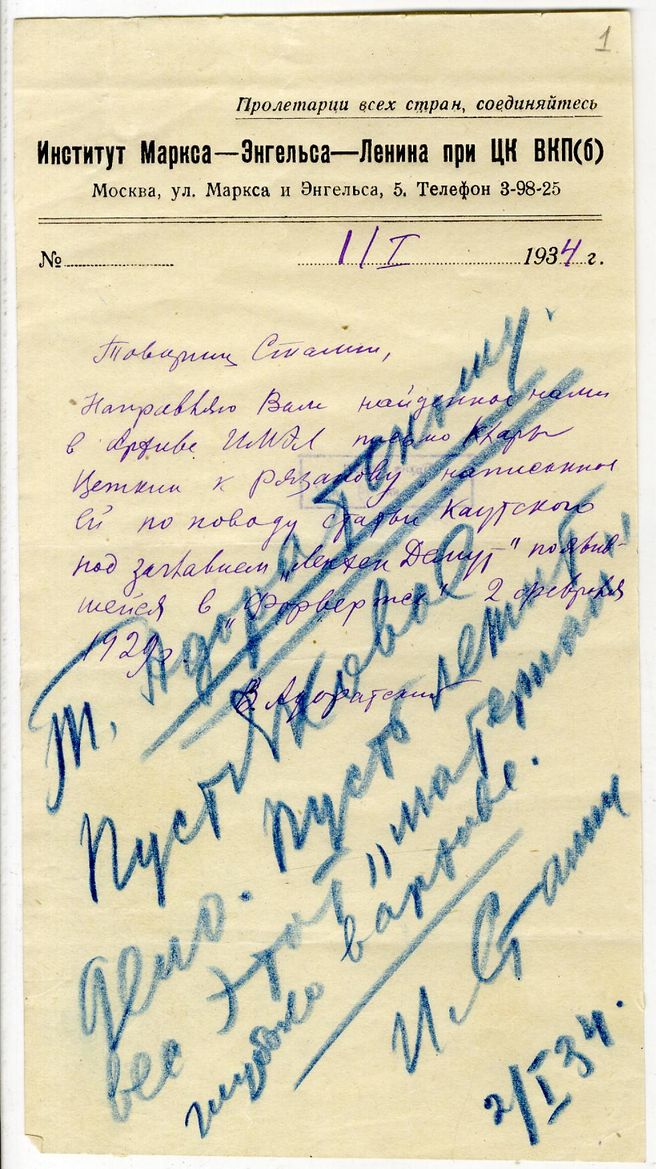 1
Пролетарии всех стран, соединяйтесь
Институт Маркса—Энгельса—Ленина при ЦК ВКП(б)
Москва, ул. Маркса и Энгельса, 5. Телефон 3-98-25
№ 1/I 1934 г.
Товарищ Сталин,
Направляю Вам найденное нами
в архиве ИМЭЛ письмо Клары
Цеткин к Рязанову, написанное
ей по поводу статьи Каутского
под заглавием „Ленхен Демут" появив-
шейся в „Форвертсе" 2 февраля
1929 г.
В. Адоратский
Т. Адоратскому.
Пустяковое
дело. Пусть лежит
весь этот „материал"
глубоко в архиве.
И. Сталин
2/I 34.